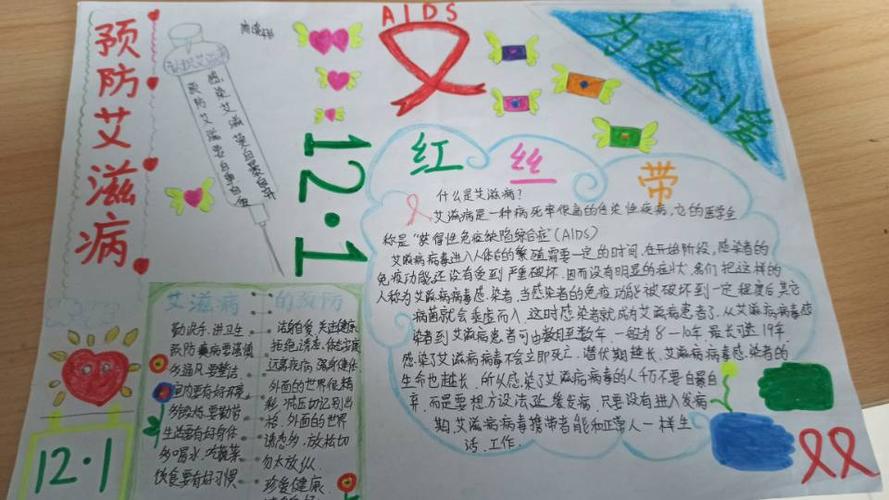 预防艾滋病
AIDS
为爱创爱
12·1
红丝带
什么是艾滋病?
艾滋病是一种病死率很高的传染性疾病,它的医学全
称是“获得性免疫缺陷综合症”(AIDS)
艾滋病病毒进入人体的繁殖需要一定的时间.在开始阶段,感染者的
免疫功能还没有受到严重破坏.因而没有明显的症状.我们把这样的
人称为艾滋病病毒感染者,当感染者的免疫功能被破坏到一定程度后其它
病菌就会乘虚而入.这时感染者就成为艾滋病患者了.从艾滋病病毒感
染者到艾滋病患者可由数月至数年.一般为8-10年.最长可达19年.
感染了艾滋病病毒不会立即死亡.潜伏期越长,艾滋病病毒感染者的
生命也越长.所以感染了艾滋病病毒的人千万不要自暴自
弃.而是要想方设法延缓发病.只要没有进入发病
期.艾滋病病毒携带者能和正常人一样生
活、工作.
艾滋病的预防
勤洗手,讲卫生
预防
多通风要整洁
室内要有好环境
生活要有好身体
多喝水,吃蔬菜
饮食要有好习惯
洁身自爱,关注健康
拒绝诱惑
远离疾病,强身健体
外面的世界很精
彩
外面的世界
诱惑多,放松切
勿太放纵
珍爱健康
12·1